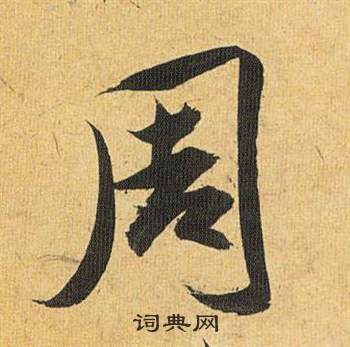 周
词典网